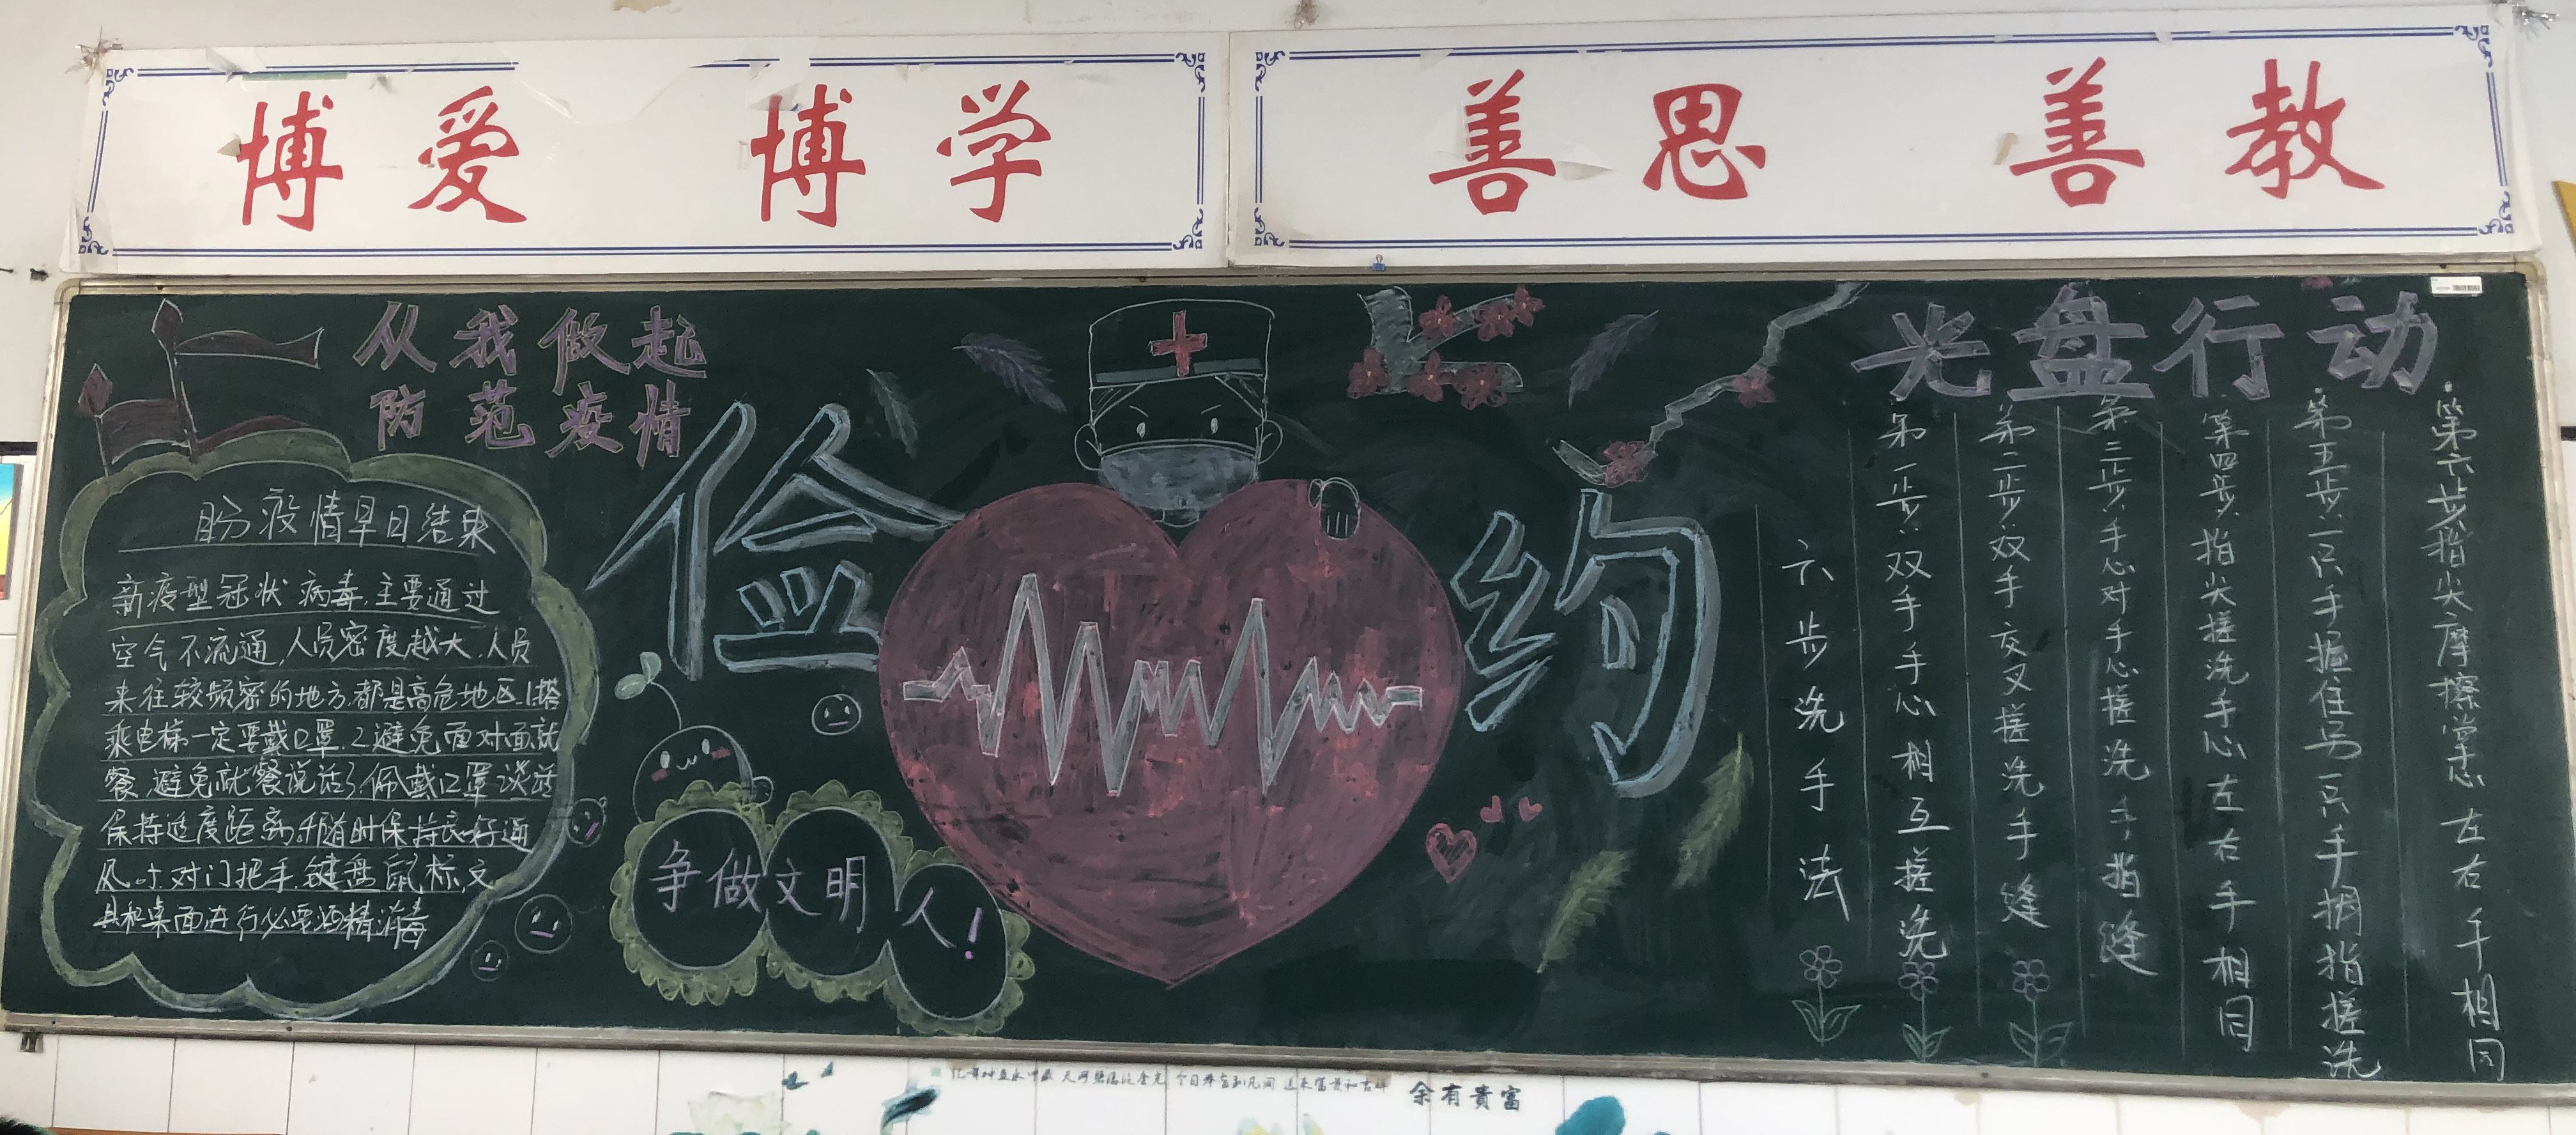 博爱 博学 善思 善教
从我做起
防范疫情
俭约
光盘行动
盼疫情早日结束
新疫型冠状病毒,主要通过
空气不流通,人员密度越大,人员
来往较频密的地方,都是高危地区,1.搭
乘电梯一定要戴口罩.2避免面对面就
餐,避免就餐说话3.佩戴口罩谈话
保持适度距离,并随时保持良好通
风.对门把手.键盘鼠标.文
具和桌面进行必要酒精消毒
争做文明人!
六步洗手法
第一步:双手手心相互搓洗
第二步:双手交叉搓洗手缝
第三步:手心对手心搓洗手指缝
第四步:指尖搓洗手心左右手相同
第五步:一只手握住另一只手拇指搓洗
第六步指尖摩擦掌心左右手相同
余有貴富